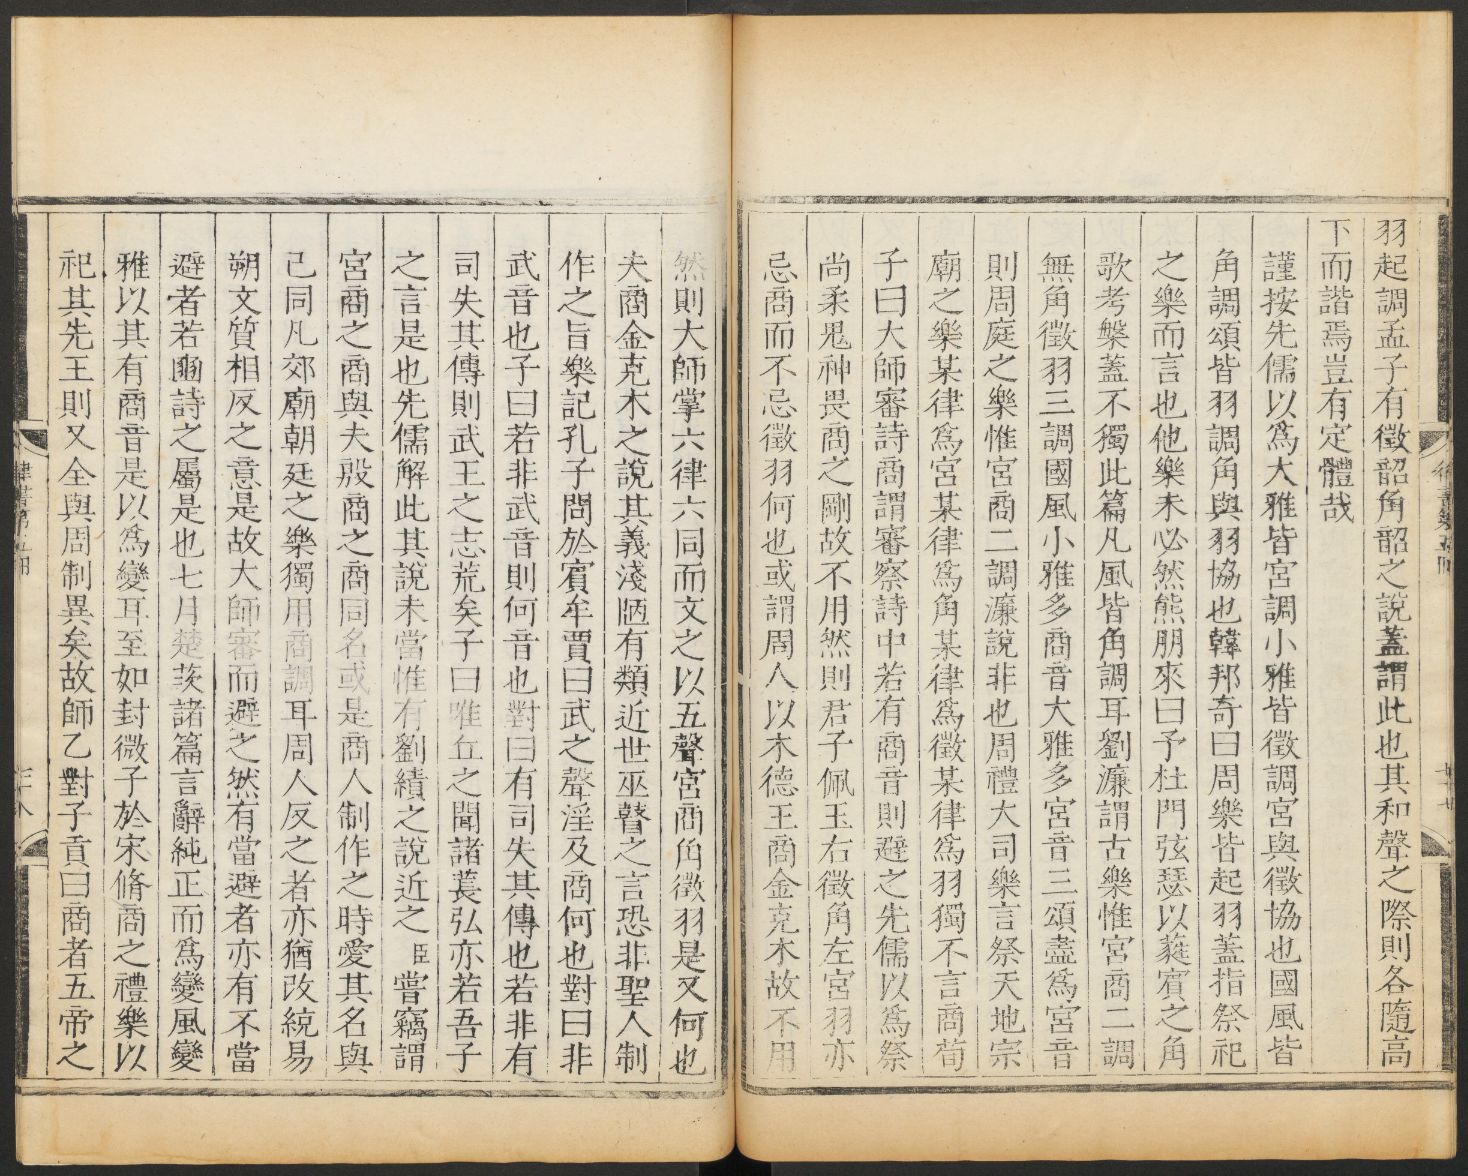 羽起調孟子有徵韶角韶之說蓋謂此也其和聲之際則各隨高
下而諧焉豈有定體哉
謹按先儒以為大雅皆宮調小雅皆徵調宮與徵協也國風皆
角調頌皆羽調角與羽協也韓邦奇曰周樂皆起羽蓋指祭祀
之樂而言也他樂未必然熊朋來曰予杜門弦瑟以蕤賓之角
歌考槃蓋不獨此篇凡風皆角調耳劉濂謂古樂惟宮商二調
無角徵羽三調國風小雅多商音大雅多宮音三頌盡為宮音
則周庭之樂惟宮商二調濂說非也周禮大司樂言祭天地宗
廟之樂某律為宮某律為角某律為徵某律為羽獨不言商荀
子曰大師審詩商謂審察詩中若有商音則避之先儒以為祭
尚柔鬼神畏商之剛故不用然則君子佩玉右徵角左宮羽亦
忌商而不忌徵羽何也或謂周人以木德王商金克木故不用
然則大師掌六律六同而文之以五聲宮商角徵羽是又何也
夫商金克木之說其義淺陋有類近世巫瞽之言恐非聖人制
作之旨樂記孔子問於賓牟賈曰武之聲淫及商何也對曰非
武音也子曰若非武音則何音也對曰有司失其傳也若非有
司失其傳則武王之志荒矣子曰唯丘之聞諸萇弘亦若吾子
之言是也先儒解此其說未當惟有劉績之說近之臣嘗竊謂
宮商之商與夫殷商之商同名或是商人制作之時愛其名與
己同凡郊廟朝廷之樂獨用商調耳周人反之者亦猶改統易
朔文質相反之意是故大師審而避之然有當避者亦有不當
避者若豳詩之屬是也七月楚茨諸篇言辭純正而為變風變
雅以其有商音是以為變耳至如封微子於宋脩商之禮樂以
祀其先王則又全與周制異矣故師乙對子貢曰商者五帝之